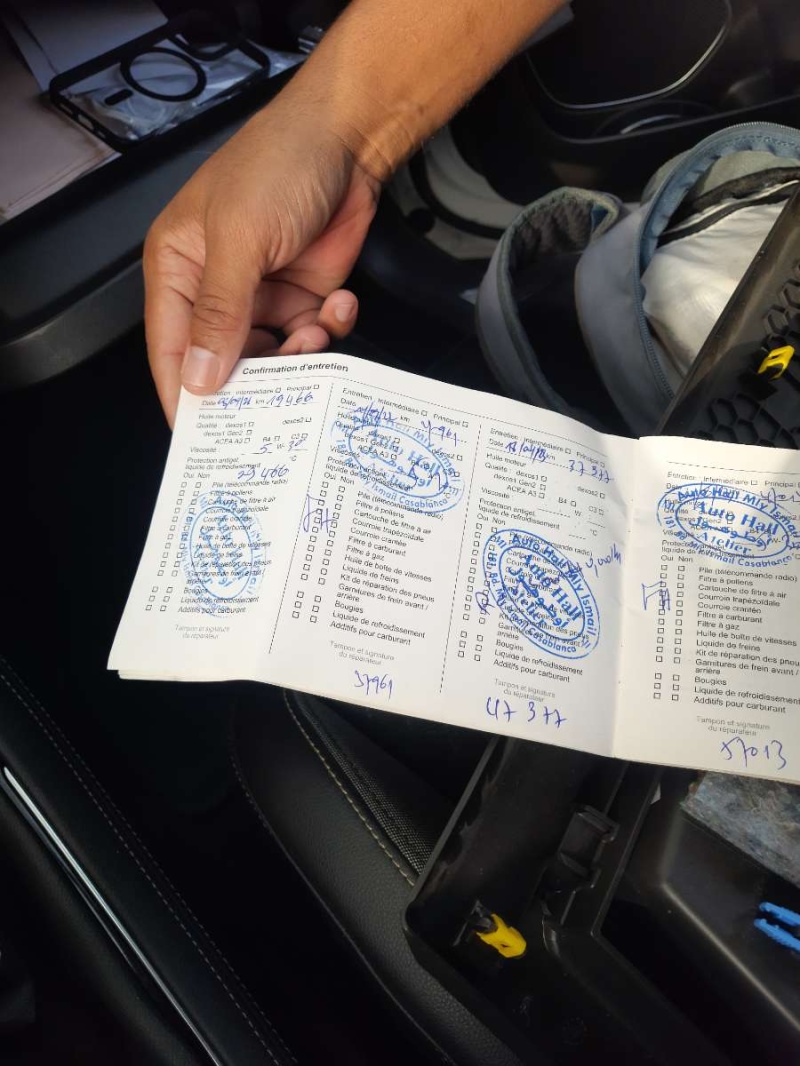 Confirmation d'entretien
Entretien Intermédiaire Principal
Date km 19466
Huile moteur
Qualité : dexos1 dexos2
dexos1 Gen2
ACEA A3 B4 C3
Viscosité 5 W- 30
Protection antigel, °C
liquide de refroidissement
29466
Oui Non
Pile (télécommande radio)
Filtre à pollens
Cartouche de filtre à air
Courroie trapézoïdale
Courroie crantée
Filtre à carburant
Filtre à gaz
Huile de boîte de vitesses
Liquide de freins
Kit de réparation des pneus
Garnitures de frein avant /
arrière
Bougies
Liquide de refroidissement
Additifs pour carburant
Tampon et signature
du réparateur
Entretien Intermédiaire Principal
Date km
Huile moteur
Qualité : dexos1 dexos2
dexos1 Gen2
ACEA A3
Viscosité
Auto Hall Mly Ismail
Auto Hall
Mly Ismail Casablanca
Oui Non
Pile (télécommande radio)
Filtre à pollens
Cartouche de filtre à air
Courroie trapézoïdale
Courroie crantée
Filtre à carburant
Filtre à gaz
Huile de boîte de vitesses
Liquide de freins
Kit de réparation des pneus
Garnitures de frein avant /
arrière
Bougies
Liquide de refroidissement
Additifs pour carburant
Tampon et signature
du réparateur
37961
Entretien Intermédiaire Principal
Date km 37377
Huile moteur
Qualité : dexos1 dexos2
dexos1 Gen2
ACEA A3 B4 C3
Viscosité W- °C
Protection antigel,
liquide de refroidissement
Oui Non
Auto Hall Mly Ismail
Auto Hall
Atelier
Mly Ismail Casablanca
Kit de réparation des pneus
arrière
Bougies
Liquide de refroidissement
Additifs pour carburant
Tampon et signature
du réparateur
47377
Entretien Intermédiaire Principal
Date
Auto Hall Mly Ismail
Auto Hall
Atelier
Mly Ismail Casablanca
liquide de
Oui Non
Pile (télécommande radio)
Filtre à pollens
Cartouche de filtre à air
Courroie trapézoïdale
Courroie crantée
Filtre à carburant
Filtre à gaz
Huile de boîte de vitesses
Liquide de freins
Kit de réparation des pneus
Garnitures de frein avant /
arrière
Bougies
Liquide de refroidissement
Additifs pour carburant
Tampon et signature
du réparateur
57013